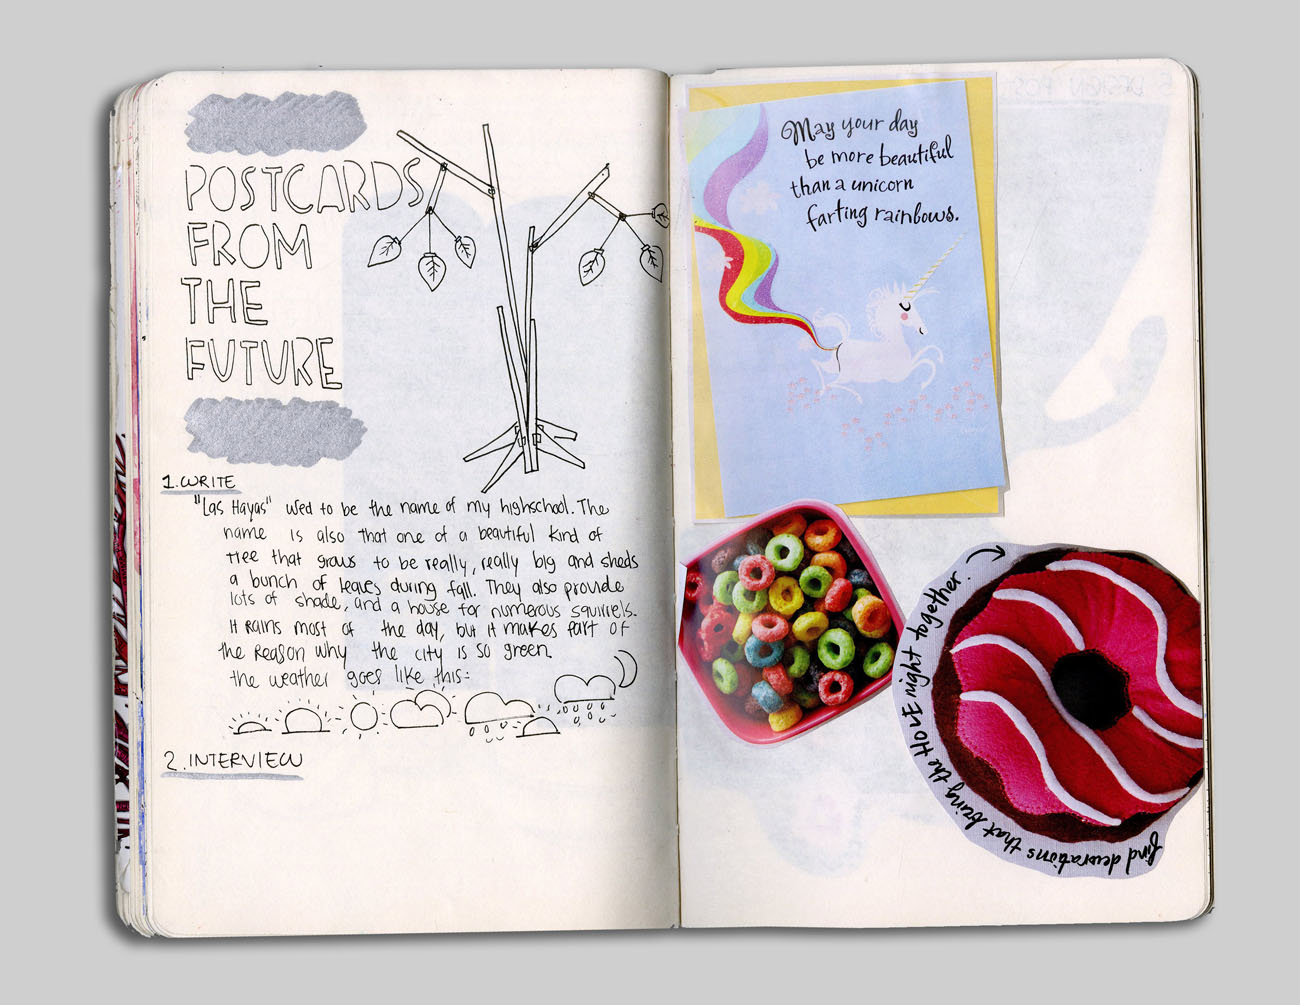 POSTCARDS
FROM
THE
FUTURE
1. WRITE
"Las Hayas" used to be the name of my highschool. The
name is also that one of a beautiful kind of
tree that grows to be really, really big and sheds
a bunch of leaves during fall. They also provide
lots of shade, and a house for numerous squirrels.
It rains most of the day, but it makes part of
the reason why the city is so green.
the weather goes like this:
2. INTERVIEW
May your day
be more beautiful
than a unicorn
farting rainbows.
find decorations that bring the HOLE night together.
5 DESIGN POST